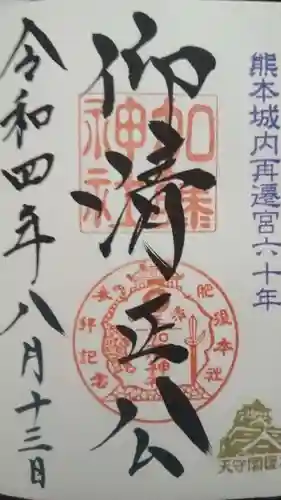 熊本城内再遷宮六十年
仰清正公
加藤神社
肥後本社
参拝記念
加藤神社
令和四年八月十三日